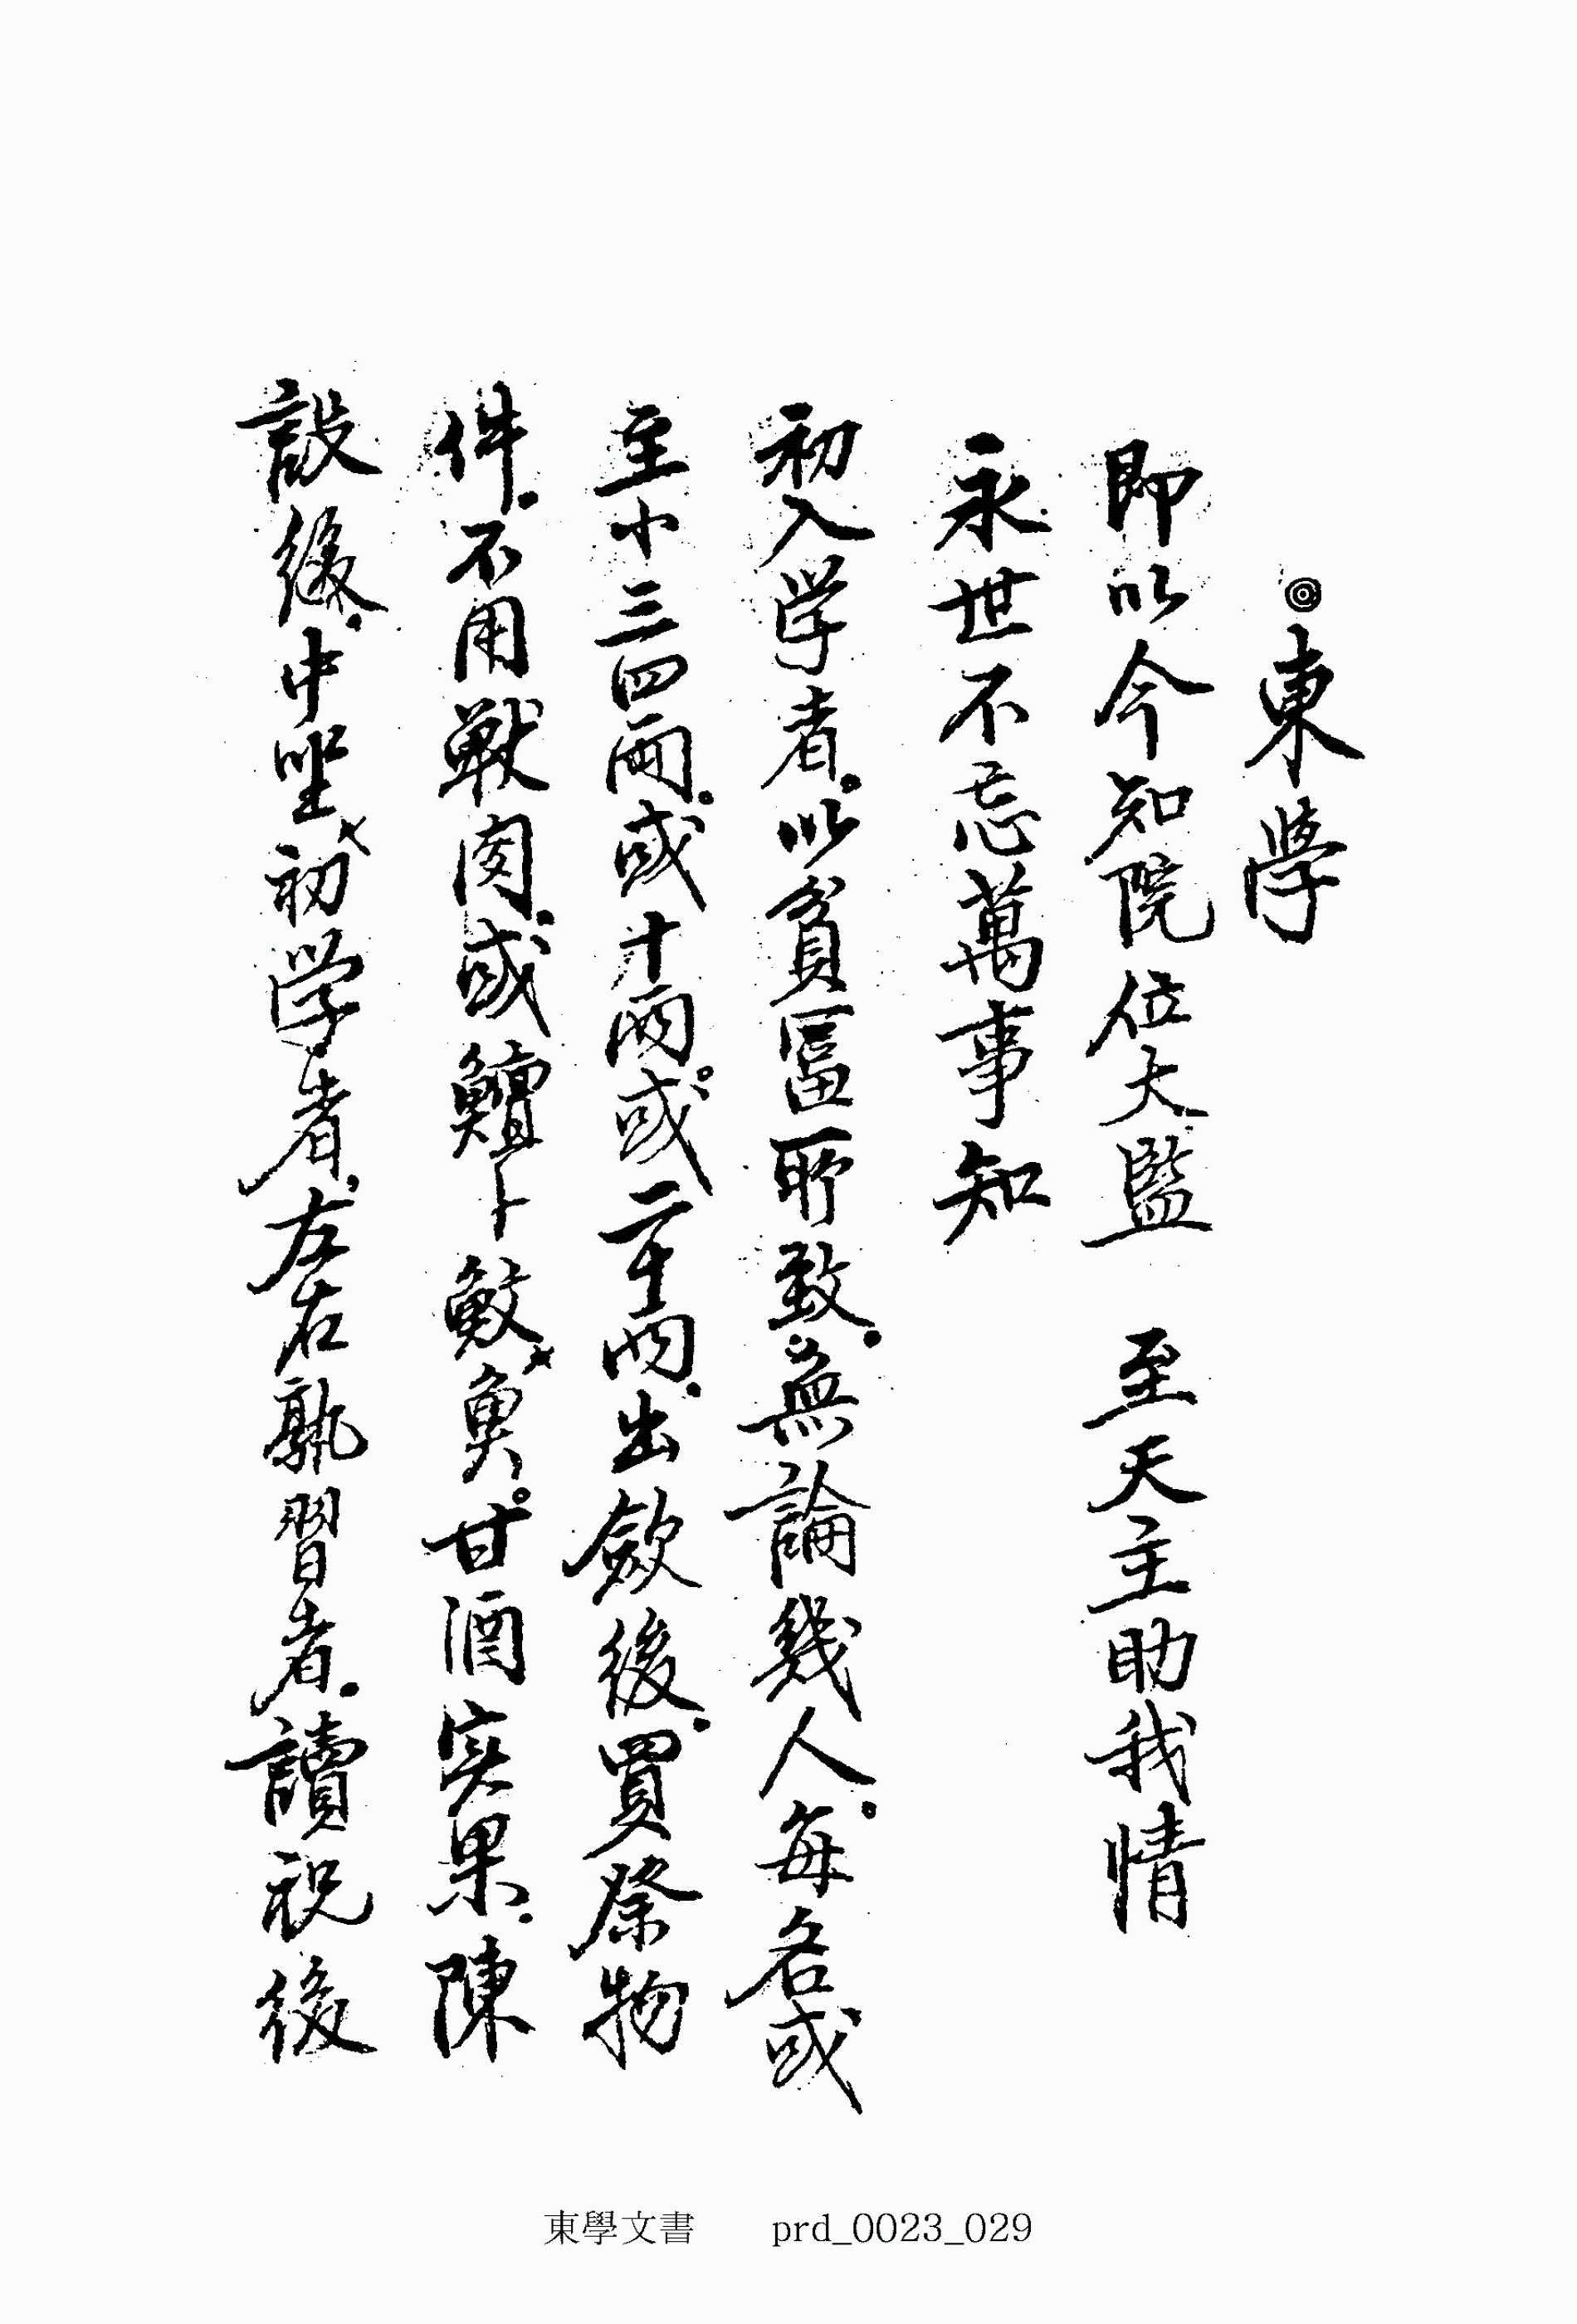 ◎東学
即以今知院位大監　至天主助我情
永世不忘萬事知
初入学者以貧富所致無論幾人每名或
至小三四兩或十兩或二十兩出斂後買祭物
件不用獸肉或鱣卜鮫魚甘酒实果陳
設後中坐初学者左右孰習者讀祝後
東學文書　prd_0023_029